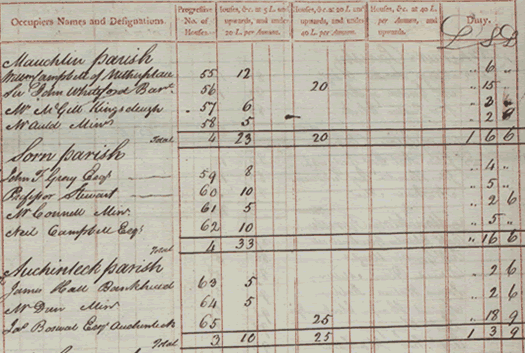 Occupiers Names and Designations. Progressive No. of Houses. Houses, &c. at 5 L. and upwards, and under 20 L. per Annum. Houses, &c. at 20 L. and upwards, and under 40 L. per Annum. Houses, &c. at 40 L. per Annum, and upwards. Duty.
L S D
Mauchlin parish
Campbell of Netherplace 55 12 .. 6 ..
Sir John Whiteford Bart. 56 20 .. 15 ..
Mr McGill Kingscleugh 57 6 .. 3 ..
Mr Auld Minr 58 5 .. 2 6
Total 4 23 20 1 6 6
Sorn parish
John F Gray Esqr 59 8 .. 4 ..
Professor Stewart 60 10 .. 5 ..
Mr Connell Minr 61 5 .. 2 6
Neil Campbell Esqr 62 10 .. 5 ..
Total 4 33 .. 16 6
Auchinleck parish
James Hall Bankhead 63 5 .. 2 6
Mr Dun Minr 64 5 .. 2 6
Jas Boswal Esqr Auchinleck 65 25 .. 18 9
Total 3 10 25 1 3 9